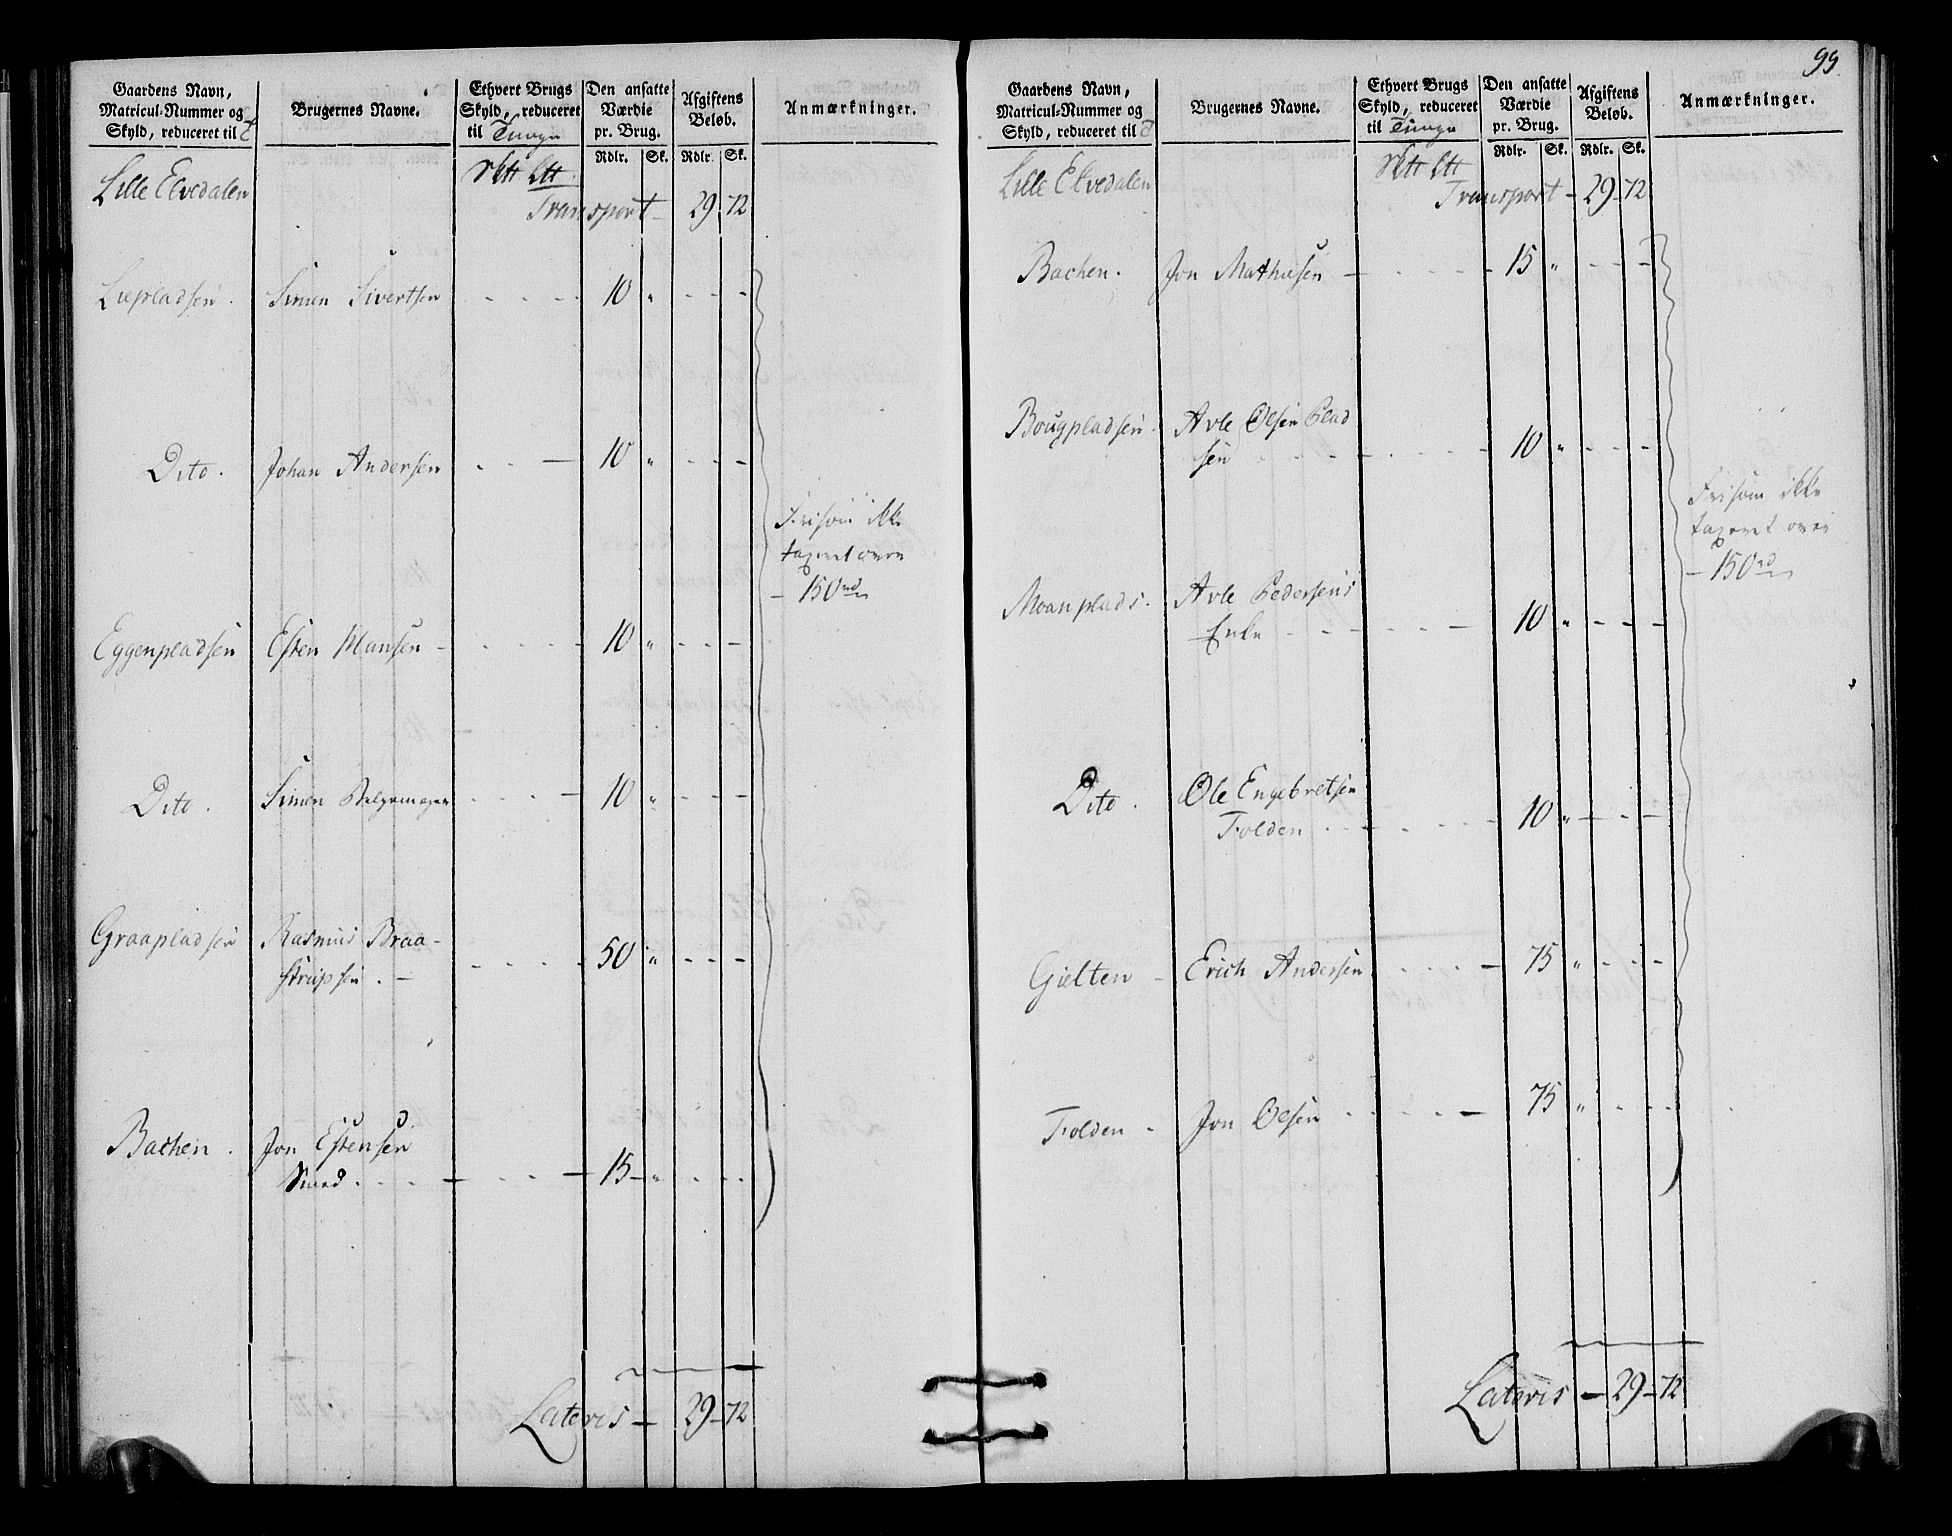 Gaardens Navn,
Matricul-Nummer og
Skyld, reduceret til
Brugernes Navne.
Ethvert Brugs
Skyld, reduceret
til Tunge
Den ansatte
Værdie
pr. Brug.
Afgiftens
Beløb.
Anmærkninger.
Rdlr. Sk. Rdlr. Sk.
Lille Elvedalen
Transport - 29 72
Liepladsen . Simen Sivertsen - - - - 10 " - - -
Dito . Johan Andersen - - - 10 " - - -
Fri som ikke
taxeret over
- 150 rd
Eggenpladsen Esten Hansen - - - - 10 " - - -
Dito . Simen - - - - 10 " - - -
Graapladsen Rasmus Braa-
strupsen . - - - - - 50 " - - -
Bachen . Jon Estensen
Smed . - - - - - 15 - " - - -
Lateris - 29 - 72
99.
Gaardens Navn,
Matricul-Nummer og
Skyld, reduceret til
Brugernes Navne.
Ethvert Brugs
Skyld, reduceret
til Tunge
Den ansatte
Værdie
pr. Brug.
Afgiftens
Beløb.
Anmærkninger.
Rdlr. Sk. Rdlr. Sk.
Lille Elvedalen
Transport - 29 - 72
Bachen . Jon Mathisen - - - - 15 " - - -
Bougpladsen . Arle Olsen Plad
sen - - - - - 10 " - - -
Fri som ikke
taxeret over
- 150 rd
Moanplads . Arle Pedersens
Enke - - - - - 10 " - - -
Dito . Ole Engebretsen
Folden . - - - - 10 " - - -
Gielten - Erich Andersen - - - - 75 " - - -
Folden - Jon Olsen - - - - 75 " - - -
Lateris - 29 - 72